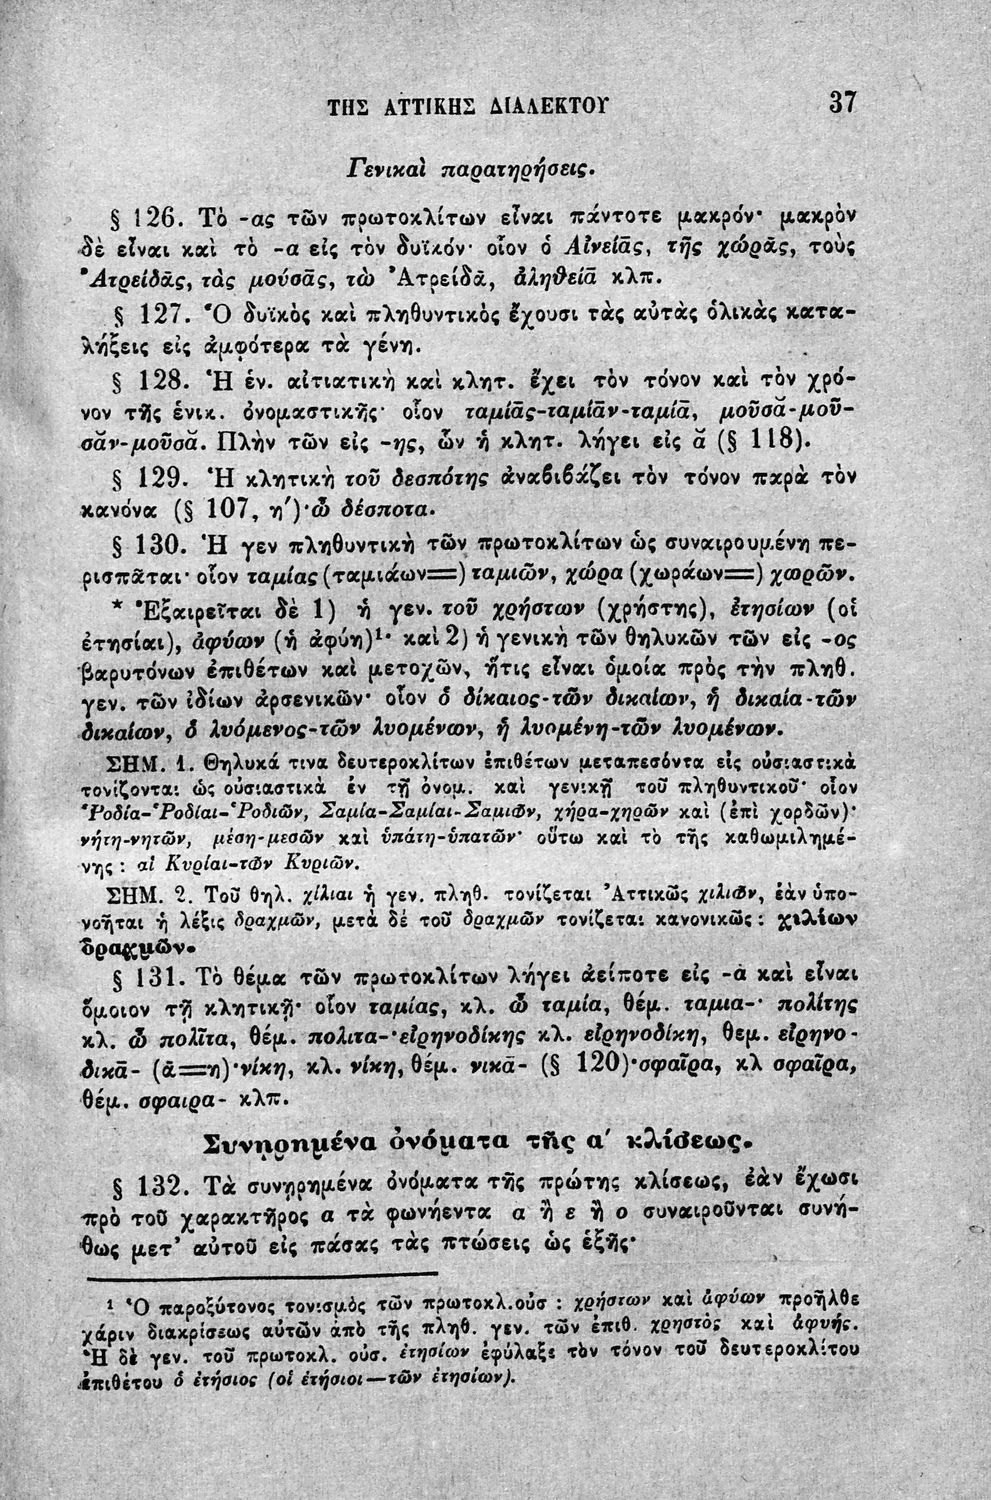 ΤΗΣ ΑΤΤΙΚΗΣ ΔΙΑΛΕΚΤΟΥ 37
Γενικαὶ παρατηρήσεις.
§ 126. Τὸ -ας τῶν πρωτοκλίτων εἶναι πάντοτε μακρόν· μακρὸν
δὲ εἶναι καὶ τὸ -α εἰς τὸν δυϊκόν· οἷον ὁ Αἰνείᾱς, τῆς χώρᾱς, τοὺς
Ἀτρείδᾱς, τὰς μούσᾱς, τὼ Ἀτρείδᾱ, ἀληθείᾱ κλπ.
§ 127. Ὁ δυϊκὸς καὶ πληθυντικὸς ἔχουσι τὰς αὐτὰς ὁλικὰς κατα-
λήξεις εἰς ἀμφότερα τὰ γένη.
§ 128. Ἡ ἑν. αἰτιατικὴ καὶ κλητ. ἔχει τὸν τόνον καὶ τὸν χρό-
νον τῆς ἑνικ. ὀνομαστικῆς· οἷον ταμίᾱς-ταμίᾱν-ταμίᾱ, μοῦσᾰ-μοῦ-
σᾰν-μοῦσᾰ. Πλὴν τῶν εἰς -ης, ὧν ἡ κλητ. λήγει εἰς ᾰ (§ 118).
§ 129. Ἡ κλητικὴ τοῦ δεσπότης ἀναβιβάζει τὸν τόνον παρὰ τὸν
κανόνα (§ 107, η')·ὦ δέσποτα.
§ 130. Ἡ γεν πληθυντικὴ τῶν πρωτοκλίτων ὡς συναιρουμένη πε-
ρισπᾶται· οἷον ταμίας (ταμιάων=) ταμιῶν, χώρα (χωράων=) χωρῶν.
* Ἐξαιρεῖται δὲ 1) ἡ γεν. τοῦ χρήστων (χρήστης), ἐτησίων (οἱ
ἐτησίαι), ἀφύων (ἡ ἀφύη)¹· καὶ 2) ἡ γενικὴ τῶν θηλυκῶν τῶν εἰς -ος
βαρυτόνων ἐπιθέτων καὶ μετοχῶν, ἥτις εἶναι ὁμοία πρὸς τὴν πληθ.
γεν. τῶν ἰδίων ἀρσενικῶν· οἷον ὁ δίκαιος-τῶν δικαίων, ἡ δικαία-τῶν
δικαίων, ὁ λυόμενος-τῶν λυομένων, ἡ λυομένη-τῶν λυομένων.
ΣΗΜ. 1. Θηλυκά τινα δευτεροκλίτων ἐπιθέτων μεταπεσόντα εἰς οὐσιαστικὰ
τονίζονται ὡς οὐσιαστικὰ ἐν τῇ ὀνομ. καὶ γενικῇ τοῦ πληθυντικοῦ· οἷον
Ῥοδία-Ῥοδίαι-Ῥοδιῶν, Σαμία-Σαμίαι-Σαμιῶν, χήρα-χηρῶν καὶ (ἐπὶ χορδῶν)·
νήτη-νητῶν, μέση-μεσῶν καὶ ὑπάτη-ὑπατῶν· οὕτω καὶ τὸ τῆς καθωμιλημέ-
νης : αἱ Κυρίαι-τῶν Κυριῶν.
ΣΗΜ. 2. Τοῦ θηλ. χίλιαι ἡ γεν. πληθ. τονίζεται Ἀττικῶς χιλιῶν, ἐὰν ὑπο-
νοῆται ἡ λέξις δραχμῶν, μετὰ δὲ τοῦ δραχμῶν τονίζεται κανονικῶς : χιλίων
δραχμῶν.
§ 131. Τὸ θέμα τῶν πρωτοκλίτων λήγει ἀείποτε εἰς -α καὶ εἶναι
ὅμοιον τῇ κλητικῇ· οἷον ταμίας, κλ. ὦ ταμία, θέμ. ταμια-· πολίτης
κλ. ὦ πολῖτα, θέμ. πολιτα-·εἰρηνοδίκης κλ. εἰρηνοδίκη, θεμ. εἰρηνο-
δικᾱ- (ᾱ=η)·νίκη, κλ. νίκη, θέμ. νικᾱ- (§ 120)·σφαῖρα, κλ σφαῖρα,
θέμ. σφαιρα- κλπ.
Συνῃρημένα ὀνόματα τῆς α' κλίσεως.
§ 132. Τὰ συνῃρημένα ὀνόματα τῆς πρώτης κλίσεως, ἐὰν ἔχωσι
πρὸ τοῦ χαρακτῆρος α τὰ φωνήεντα α ἢ ε ἢ ο συναιροῦνται συνή-
θως μετ' αὐτοῦ εἰς πάσας τὰς πτώσεις ὡς ἑξῆς·
¹ Ὁ παροξύτονος τονισμὸς τῶν πρωτοκλ.οὐσ : χρήστων καὶ ἀφύων προῆλθε
χάριν διακρίσεως αὐτῶν ἀπὸ τῆς πληθ. γεν. τῶν ἐπιθ. χρηστὸς καὶ ἀφυής.
Ἡ δὲ γεν. τοῦ πρωτοκλ. οὐσ. ἐτησίων ἐφύλαξε τὸν τόνον τοῦ δευτεροκλίτου
ἐπιθέτου ὁ ἐτήσιος (οἱ ἐτήσιοι—τῶν ἐτησίων).